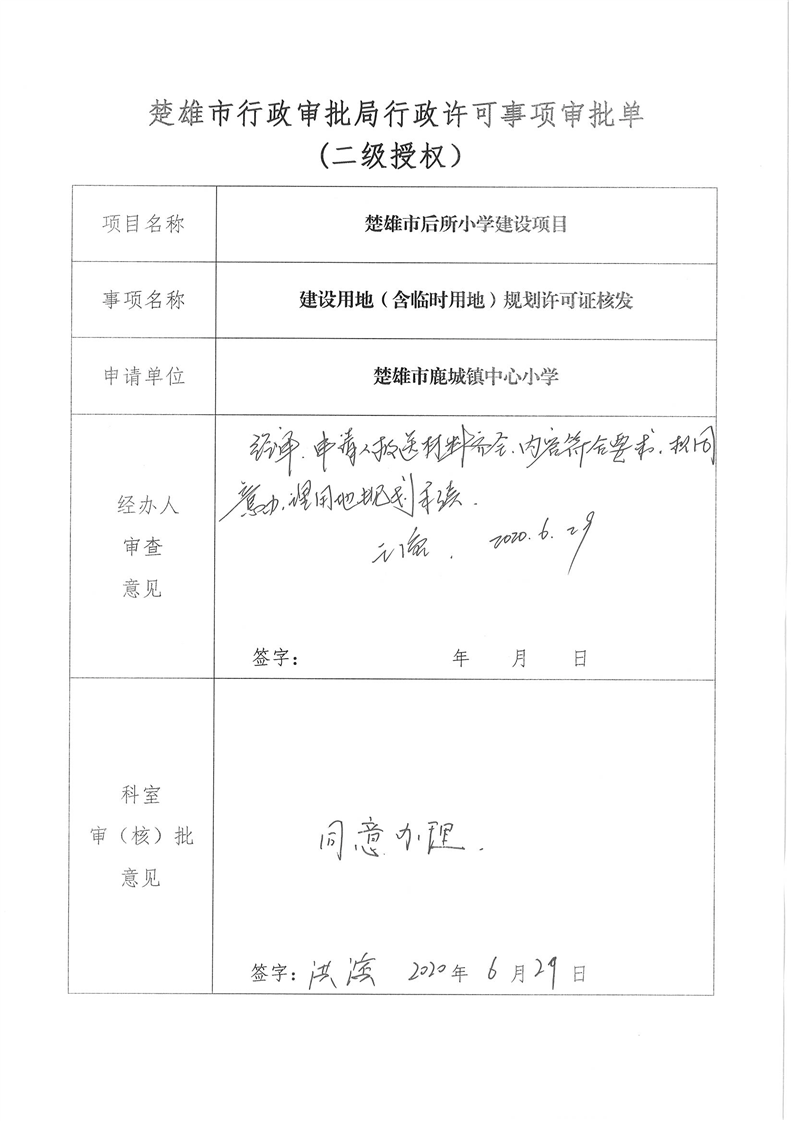 楚雄市行政审批局行政许可事项审批单
(二级授权）
项目名称
楚雄市后所小学建设项目
事项名称
建设用地（含临时用地）规划许可证核发
申请单位
楚雄市鹿城镇中心小学
经办人
审查
意见
经审，申请人报送材料齐全，内容符合要求，拟同
意办理用地规划手续．
2020.6.29
签字： 年 月 日
科室
审（核）批
意见
同意办理．
签字：洪 2020年6月29日